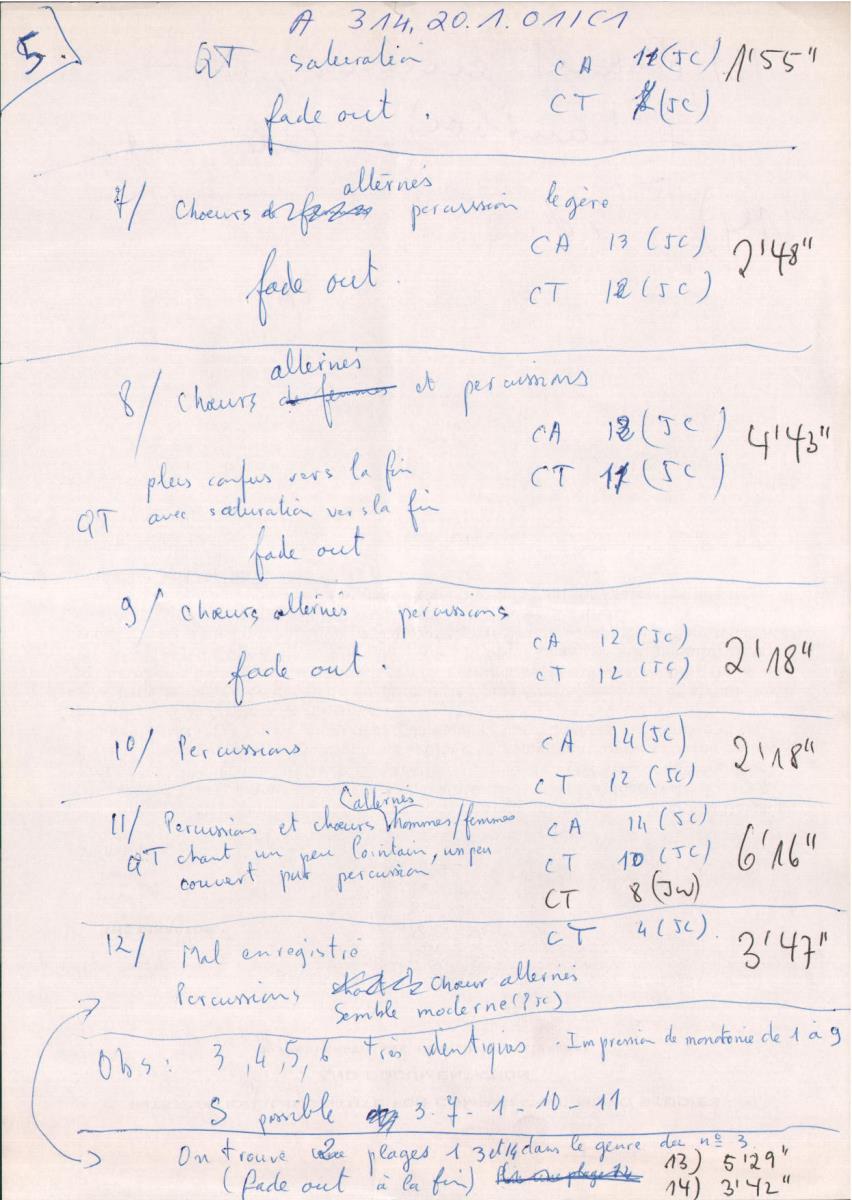 A 314.20.1.01/C1
5.
QT saturation CA 11 (JC) 1'55"
fade out. CT (JC)
7/ Chœurs alternés percussion légère
CA 13 (JC) 2'48"
fade out. CT 12 (JC)
8/ Chœurs alternés et percussions
CA 13 (JC) 4'43"
plus confus vers la fin CT 11 (JC)
QT avec saturation vers la fin
fade out
9/ Chœurs alternés percussions
CA 12 (JC) 2'18"
fade out. CT 12 (JC)
10/ Percussions CA 14 (JC) 2'18"
CT 12 (JC)
11/ Percussions et chœurs (alternés hommes/femmes CA 14 (JC) 6'16"
QT chant un peu lointain, un peu CT 10 (JC)
couvert par percussion CT 8 (JW)
12/ Mal enregistré CT 4 (JC). 3'47"
Percussions Chœur alternés
Semble moderne (? JC)
Obs: 3, 4, 5, 6 très identiques. Impression de monotonie de 1 à 9
S possible 3-7-1-10-11
On trouve 2 plages 13 et 14 dans le genre du n° 3.
(fade out à la fin) 13) 5'29"
14) 3'42"